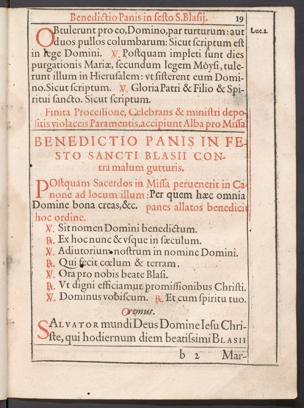 Benedictio Panis in festo S. Blasij. 19
OBtulerunt pro eo, Domino, par turturum: aut Luc. 2.
duos pullos columbarum: Sicut scriptum est
in lege Domini. ℣. Postquam impleti sunt dies
purgationis Mariæ, secundum legem Moysi, tule-
runt illum in Hierusalem: vt sisterent eum Domi-
no. Sicut scriptum. ℣. Gloria Patri & Filio & Spi-
ritui sancto. Sicut scriptum.
Finita Processione, Celebrans & ministri depo-
sitis violaceis Paramentis, accipiunt Alba pro Missa.
BENEDICTIO PANIS IN FE-
STO SANCTI BLASII CON-
tra malum gutturis.
POstquam Sacerdos in Missa peruenerit in Ca-
none ad locum illum: Per quem hæc omnia
Domine bona creas, &c. panes allatos benedicit
hoc ordine.
℣. Sit nomen Domini benedictum.
℟. Ex hoc nunc & vsque in sæculum.
℣. Adiutorium nostrum in nomine Domini.
℟. Qui fecit cœlum & terram.
℣. Ora pro nobis beate Blasi.
℟. Vt digni efficiamur promissionibus Christi.
℣. Dominus vobiscum. ℟. Et cum spiritu tuo.
Oremus.
SALVATOR mundi Deus Domine Iesu Chri-
ste, qui hodiernum diem beatissimi BLASII
b 2 Mar-